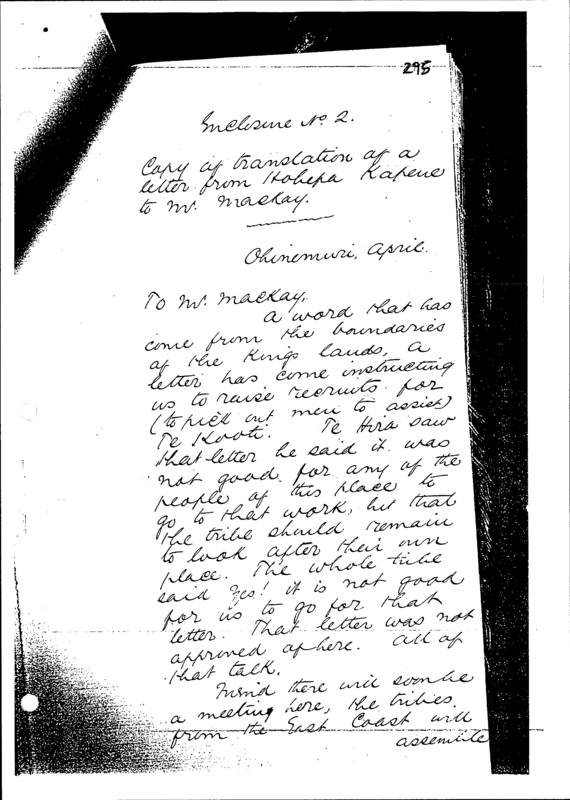 295
Enclosure No 2.
Copy of translation of a
letter from Hohepa Kapene
to Mr. Mackay.
Ohinemuri, April.
To Mr. Mackay,
A word that has
come from the boundaries
of the Kings lands, a
letter has come instructing
us to raise recruits for
(to pick out men to assist)
Te Kooti. Te Hira saw
that letter he said it was
not good for any of the
people of this place to
go to that work, but that
the tribe should remain
to look after their own
place. The whole tribe
said Yes! it is not good
for us to go for that
letter. That letter was not
approved of here. All of
that talk.
Mind there will soon be
a meeting here, the tribes
from the East Coast will
assemble